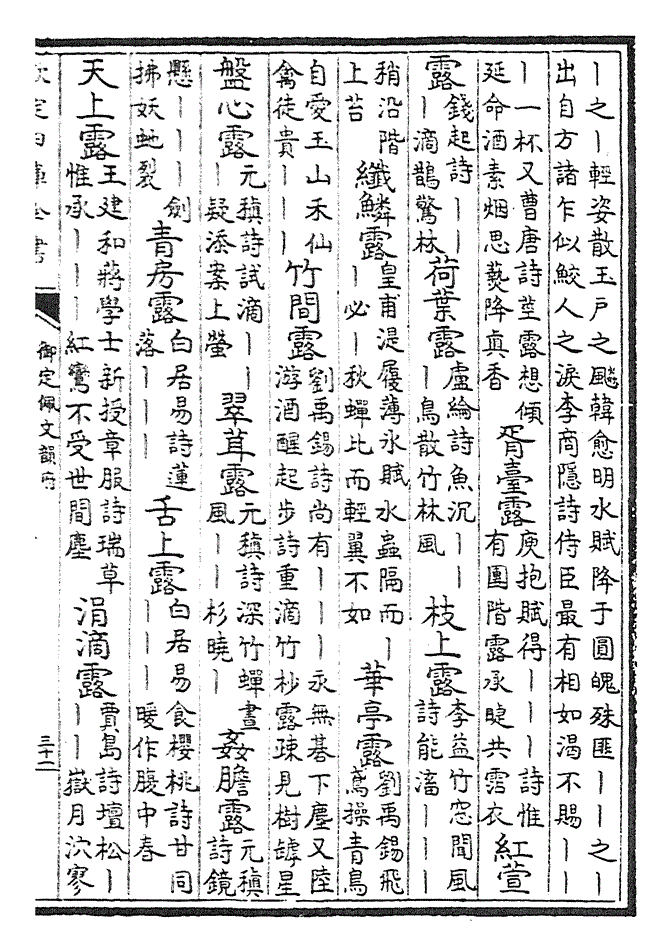 ｜之｜輕姿散玉戶之颸韓愈明水賦降于圓魄殊匪｜｜之｜
出自方諸乍似鮫人之淚李商隱詩侍臣最有相如渴不賜｜｜
｜一杯又曹唐詩莖露想傾
延命酒素烟思爇降真香
胥臺露
庾抱賦得｜｜｜詩惟
有圍階露承睫共霑衣
紅萱
露
錢起詩｜｜
｜滴鵲驚林
荷葉露
盧綸詩魚沉｜｜
｜鳥散竹林風
枝上露
李益竹窓聞風
詩能滴｜｜｜
稍沿階
上苔
纖鱗露
皇甫湜履薄氷賦水蟲隔而｜
｜必｜秋蟬比而輕翼不如
華亭露
劉禹錫飛
鳶操青鳥
自愛玉山禾仙
禽徒貴｜｜｜
竹間露
劉禹錫詩尚有｜｜｜永無碁下塵又陸
游酒醒起步詩重滴竹杪露疎見樹罅星
盤心露
元稹詩試滴｜｜
｜疑添案上螢
翠茸露
元稹詩深竹蟬晝
風｜｜杉曉｜
姦膽露
元稹
詩鏡
懸｜｜｜劍
拂妖虵裂
青房露
白居易詩蓮
落｜｜｜
舌上露
白居易食櫻桃詩甘同
｜｜｜暖作腹中春
天上露
王建和蔣學士新授章服詩瑞草
惟承｜｜｜紅鸞不受世間塵
涓滴露
賈島詩壇松｜
｜｜嶽月泬寥
欽定四庫全書
御定佩文韻府
三十二